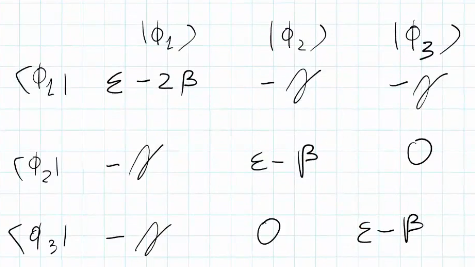 |ϕ1⟩ |ϕ2⟩ |ϕ3⟩
⟨ϕ1| ε-2β -γ -γ
⟨ϕ2| -γ ε-β 0
⟨ϕ3| -γ 0 ε-β